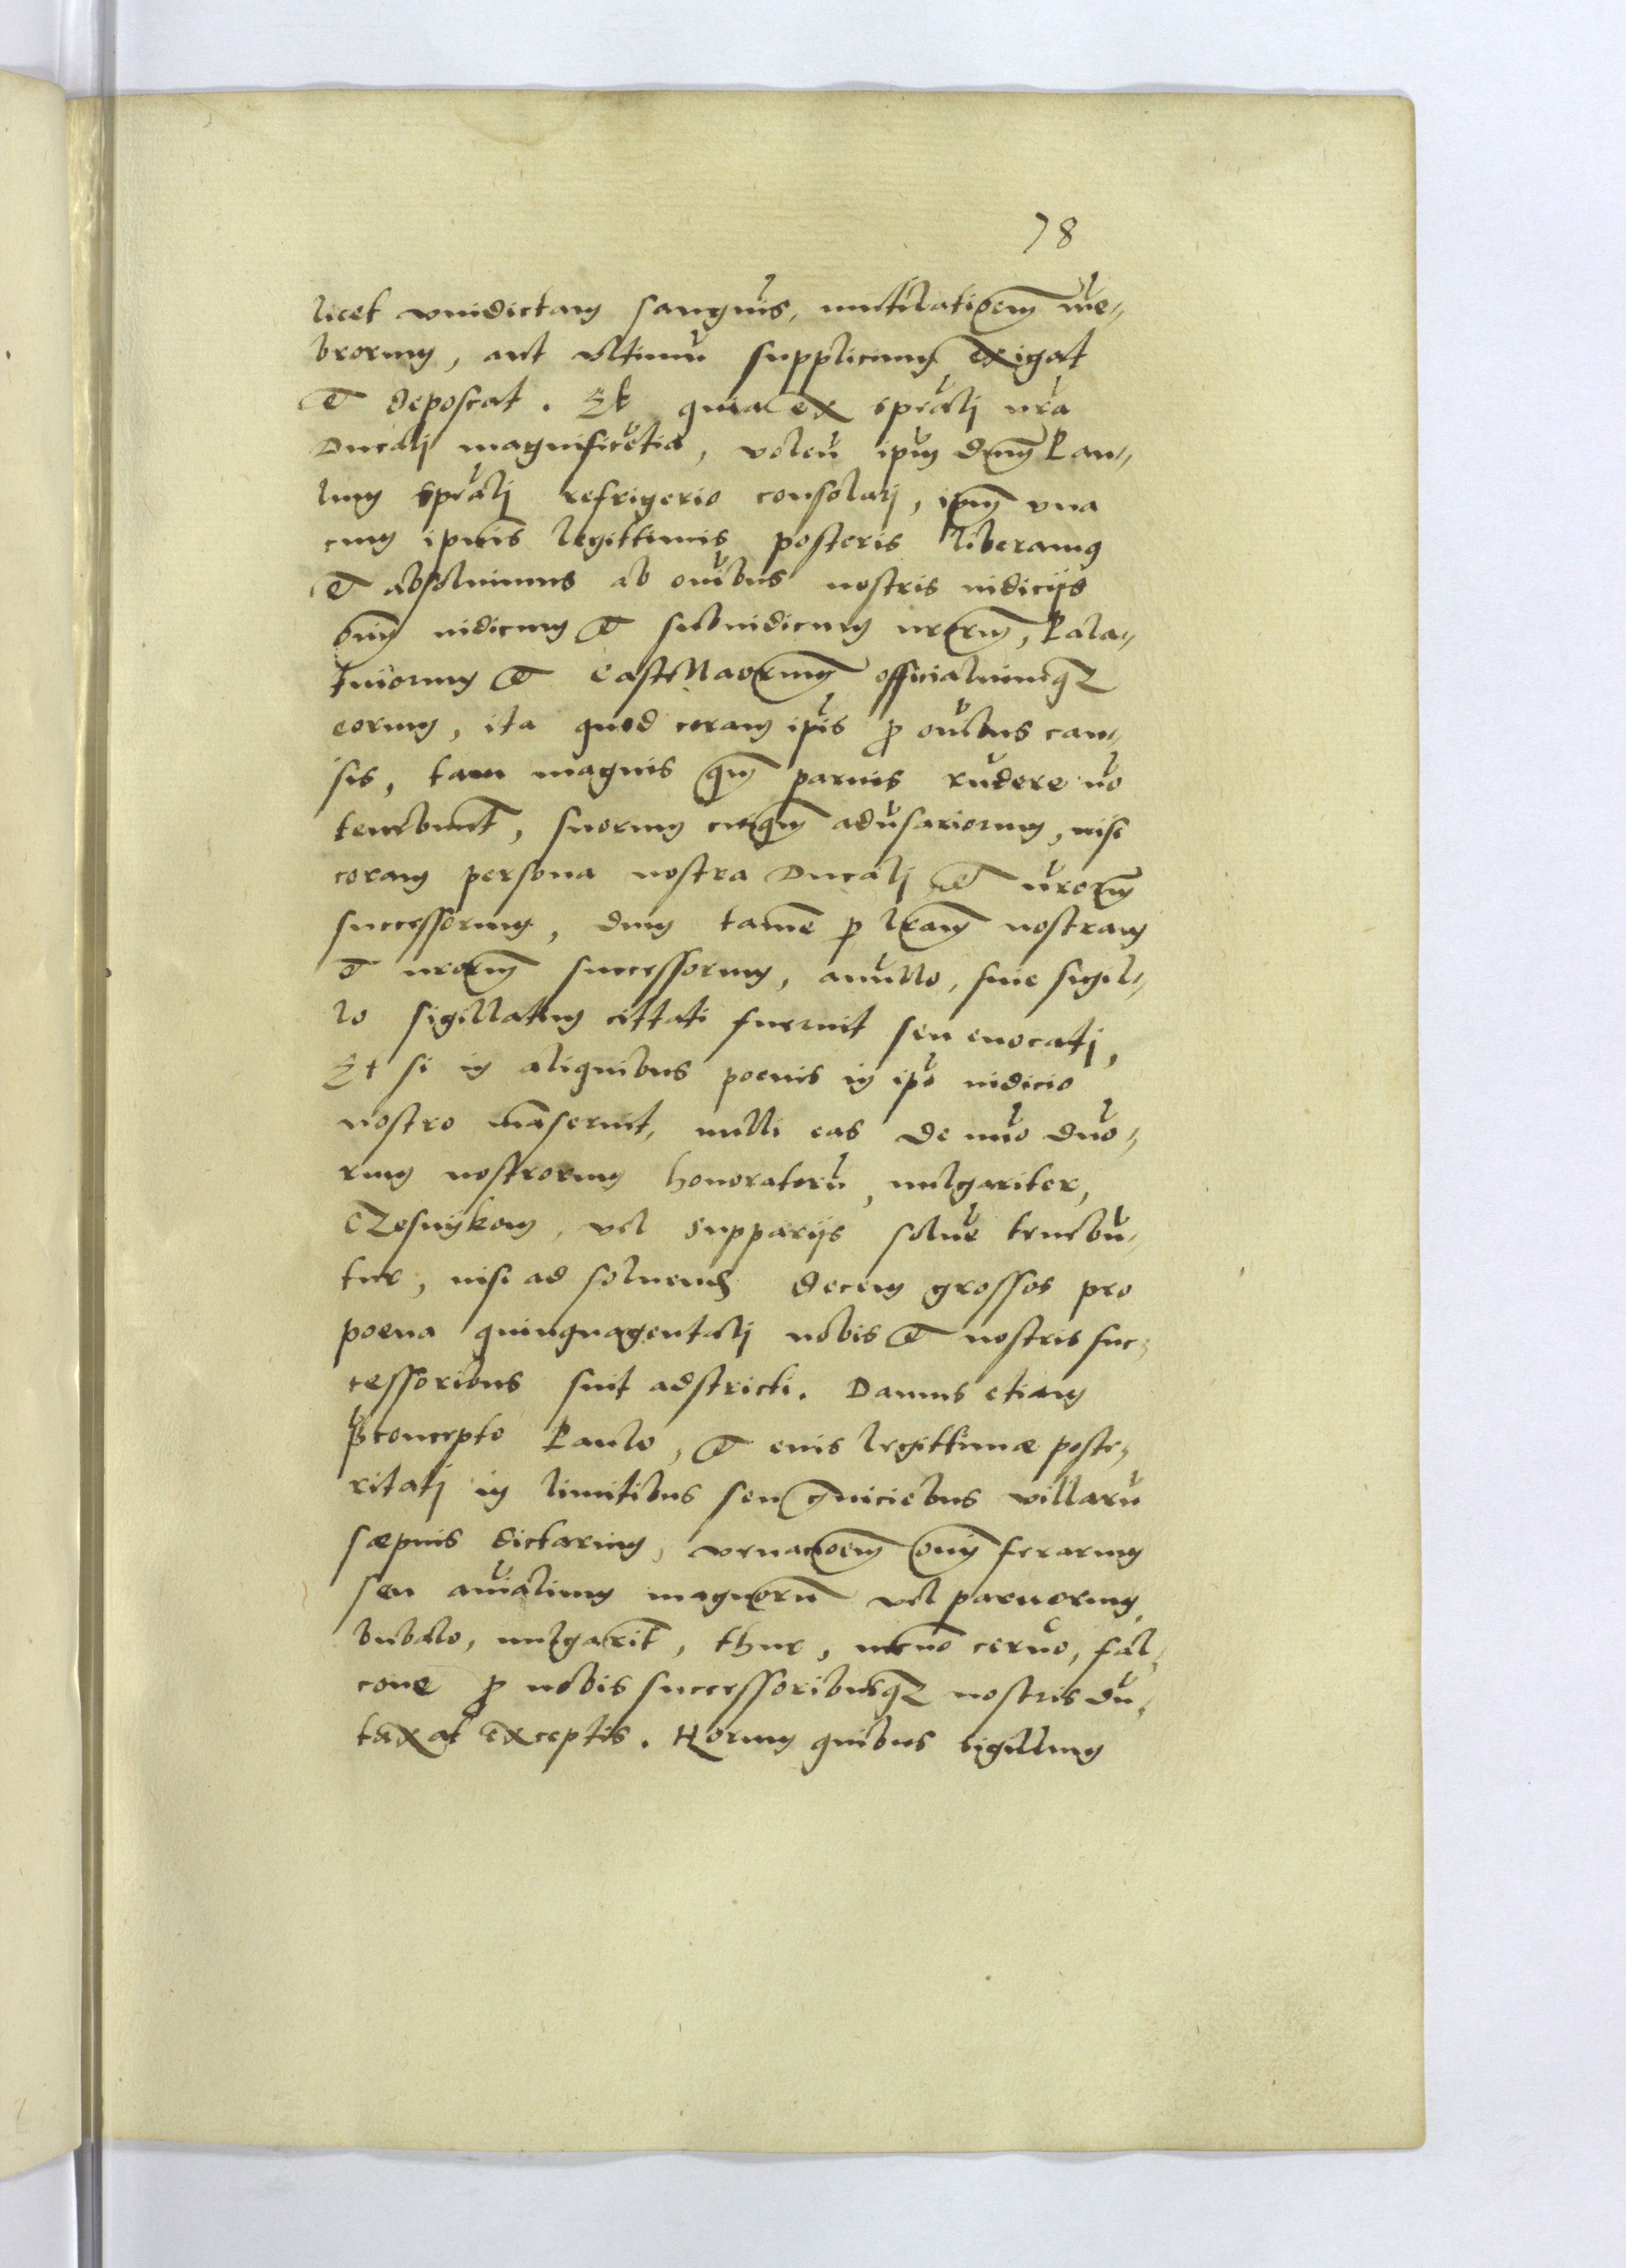 78
licet vindictam sanguīs, mutilatioēm mē⸗
brorum, aut vltimū supplicium exigat
et deposcat. Et quia ex spēāli nrā
Ducali magnificētia, volen̄ ipm̄ dnm̄ Pau⸗
lum spēāli refrigerio consolari, ipm̄ vna
cum ipsius legittimis posteris liberamus
et absoluimus ab omībus nostris iudicijs
omī iudicum et subiudicum nrorum̄, Pala⸗
tinorum et Castellanorum officialiumq̄
eorum, ita quod coram ipīs p omībus cau⸗
sis, tam magnis quam̄ paruis rn̄dere nō
tenebunt̄, suorum cuiq̄m aduēsariorum, nisi
coram persona nostra Ducali et nrorum̄
successorum, dum tamē p lrām̄ nostram
et nrorum̄ successorum, anullo, siue sigil⸗
lo sigillatum cittati fuerint seu euocati,
Et si in aliquibus poenis in ipō iudicio
nostro māserint, nulli eas de nūo dūo⸗
rum nostrorum honoratorū, uulgariter,
Czesnijkom, vel supparijs soluē tenebū⸗
tur, nisi ad soluend decem grossos pro
poena quinquagentali nobis et nostris suc⸗
cessoribus sint adstricti. Damus etiam
p̄concepto Paulo, et eius legittimæ poste⸗
ritati in limitibus seu g̅niciebus villarū
sæpius dictarum, venacioēm omī ferarum
seu aīalium magnorū vel paruorum,
bubalo, uulgarit̄, thur, necnō ceruo, fal⸗
cone p nobis successoribusq̄ nostris dū⸗
taxat exceptis. Horum quibus sigillum